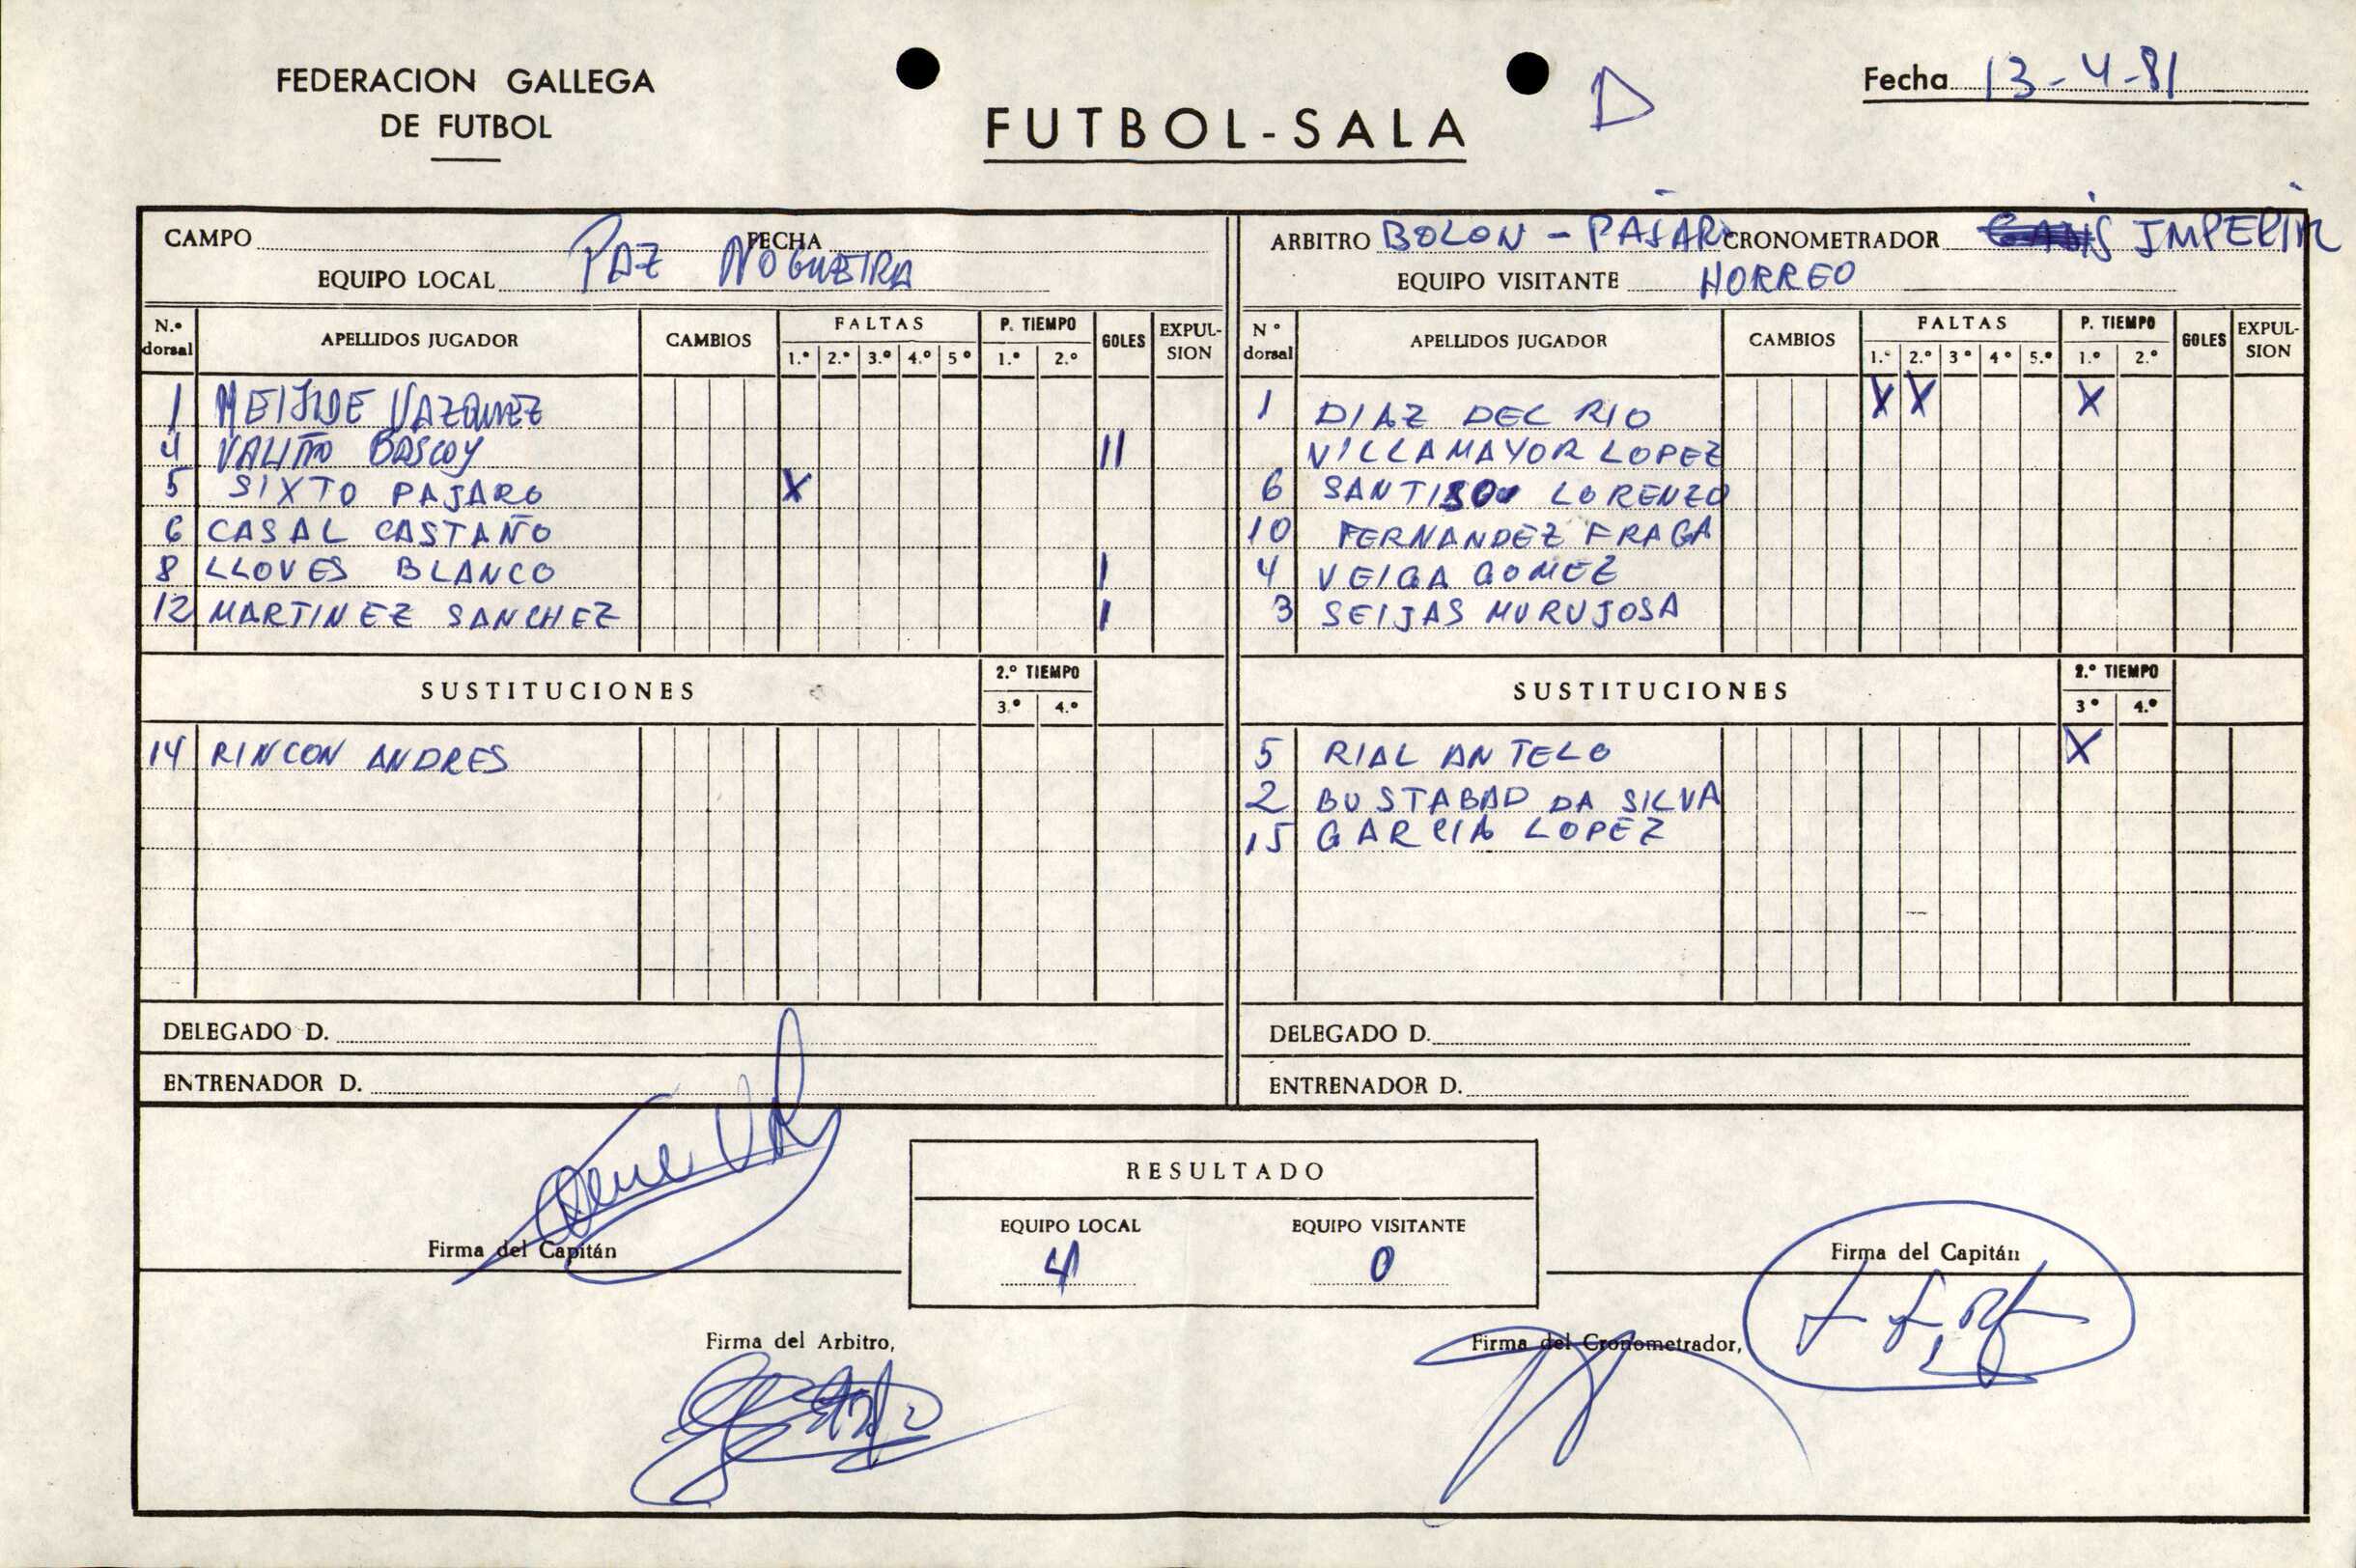 FEDERACION GALLEGA
DE FUTBOL
FUTBOL-SALA
D
Fecha 13-4-81
CAMPO FECHA
EQUIPO LOCAL PAZ NOGUEIRA
N.º dorsal APELLIDOS JUGADOR CAMBIOS FALTAS 1.º 2.º 3.º 4.º 5º P. TIEMPO 1.º 2.º GOLES EXPUL-SION
1 MEIJIDE VAZQUEZ
4 VALIÑO BASCOY II
5 SIXTO PAJARO X
6 CASAL CASTAÑO
8 LLOVES BLANCO I
12 MARTINEZ SANCHEZ I
SUSTITUCIONES 2.º TIEMPO 3.º 4.º
14 RINCON ANDRES
DELEGADO D.
ENTRENADOR D.
ARBITRO BOLON - PAJARO CRONOMETRADOR IMPERIAL
EQUIPO VISITANTE HORREO
Nº dorsal APELLIDOS JUGADOR CAMBIOS FALTAS 1.º 2.º 3º 4º 5.º P. TIEMPO 1.º 2.º GOLES EXPUL-SION
1 DIAZ DEL RIO X X X
VILLAMAYOR LOPEZ
6 SANTISO LORENZO
10 FERNANDEZ FRAGA
4 VEIGA GOMEZ
3 SEIJAS MURUJOSA
SUSTITUCIONES 2.º TIEMPO 3º 4.º
5 RIAL ANTELO X
2 BUSTABAD DA SILVA
15 GARCIA LOPEZ
DELEGADO D.
ENTRENADOR D.
RESULTADO
EQUIPO LOCAL EQUIPO VISITANTE
4 0
Firma del Capitán
Firma del Capitán
Firma del Arbitro,
Firma del Cronometrador,